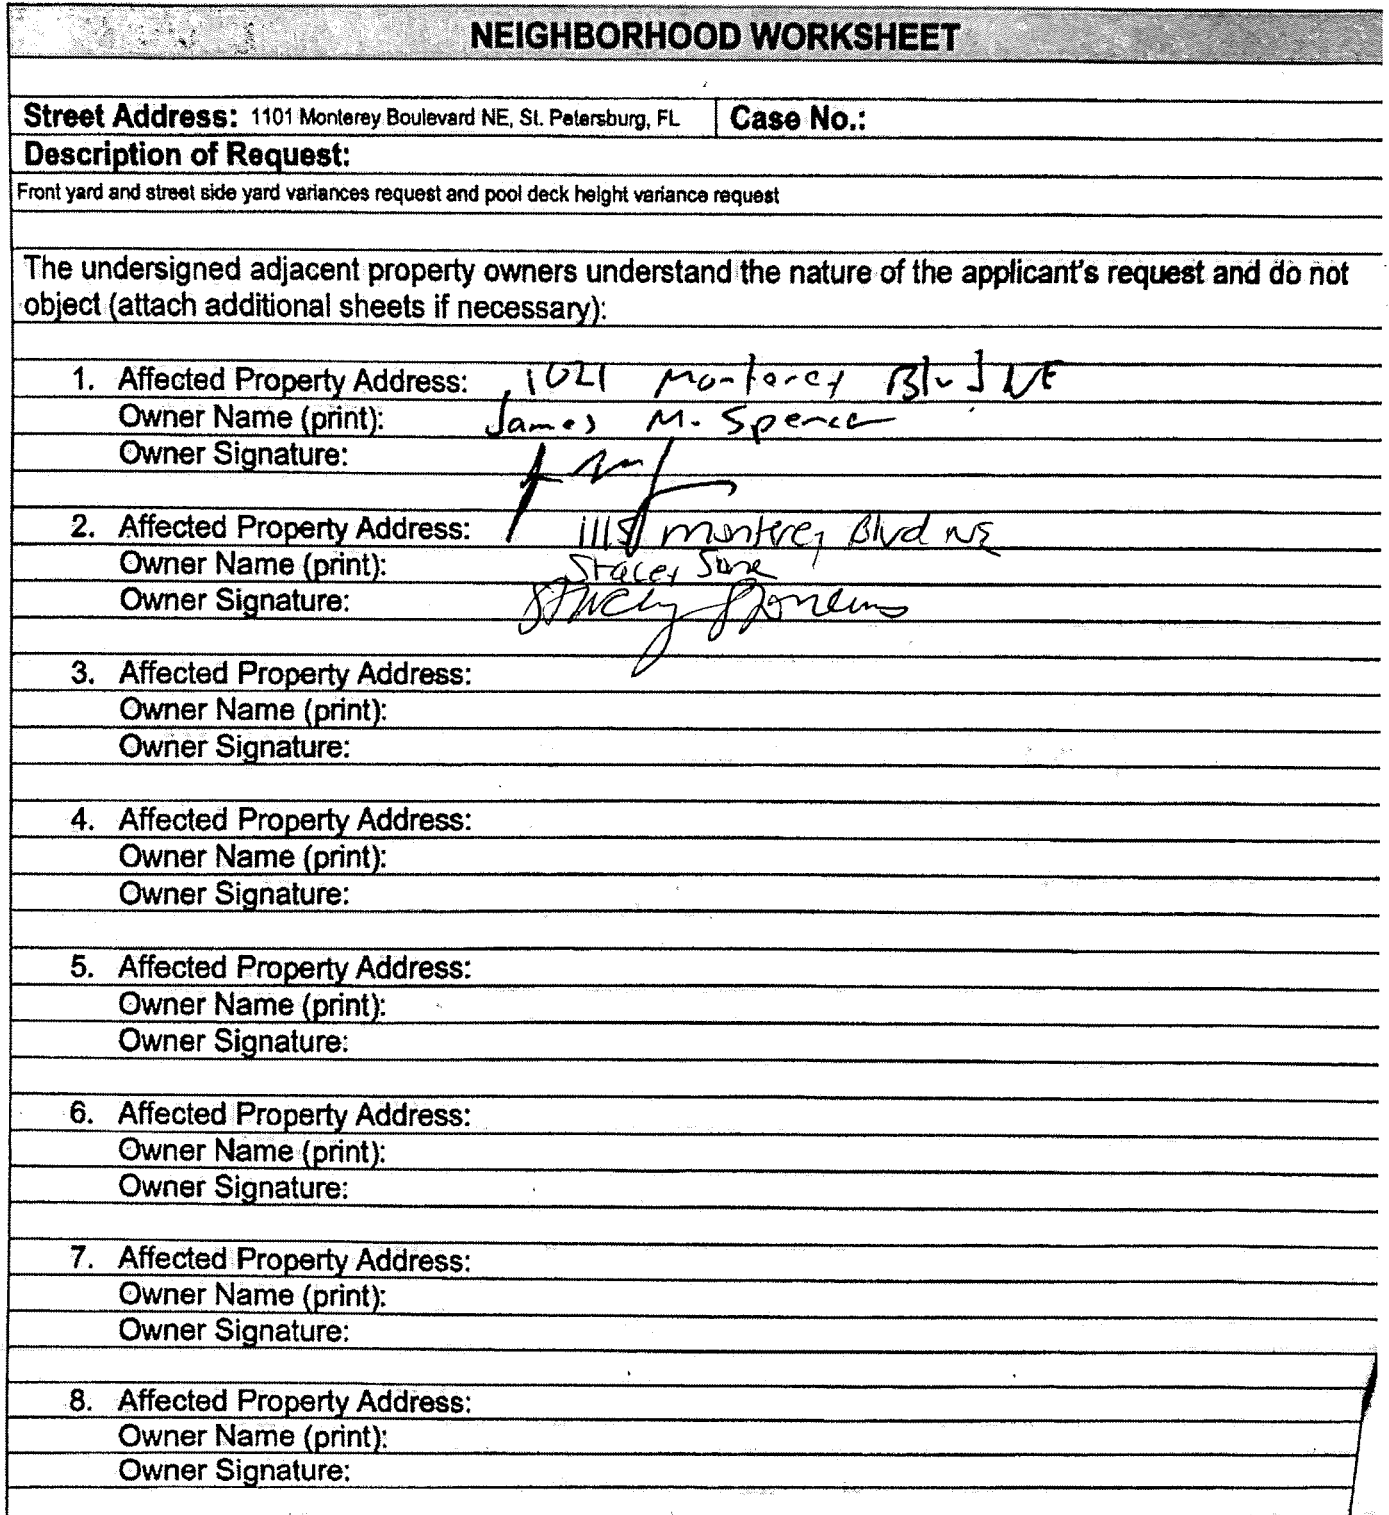 NEIGHBORHOOD WORKSHEET
Street Address: 1101 Monterey Boulevard NE, St. Petersburg, FL Case No.:
Description of Request:
Front yard and street side yard variances request and pool deck height variance request
The undersigned adjacent property owners understand the nature of the applicant's request and do not
object (attach additional sheets if necessary):
1. Affected Property Address: 1021 Monterey Blvd NE
Owner Name (print): James M. Spencer
Owner Signature:
2. Affected Property Address: Monterey Blvd NE
Owner Name (print): Stacey
Owner Signature: Stacey
3. Affected Property Address:
Owner Name (print):
Owner Signature:
4. Affected Property Address:
Owner Name (print):
Owner Signature:
5. Affected Property Address:
Owner Name (print):
Owner Signature:
6. Affected Property Address:
Owner Name (print):
Owner Signature:
7. Affected Property Address:
Owner Name (print):
Owner Signature:
8. Affected Property Address:
Owner Name (print):
Owner Signature: